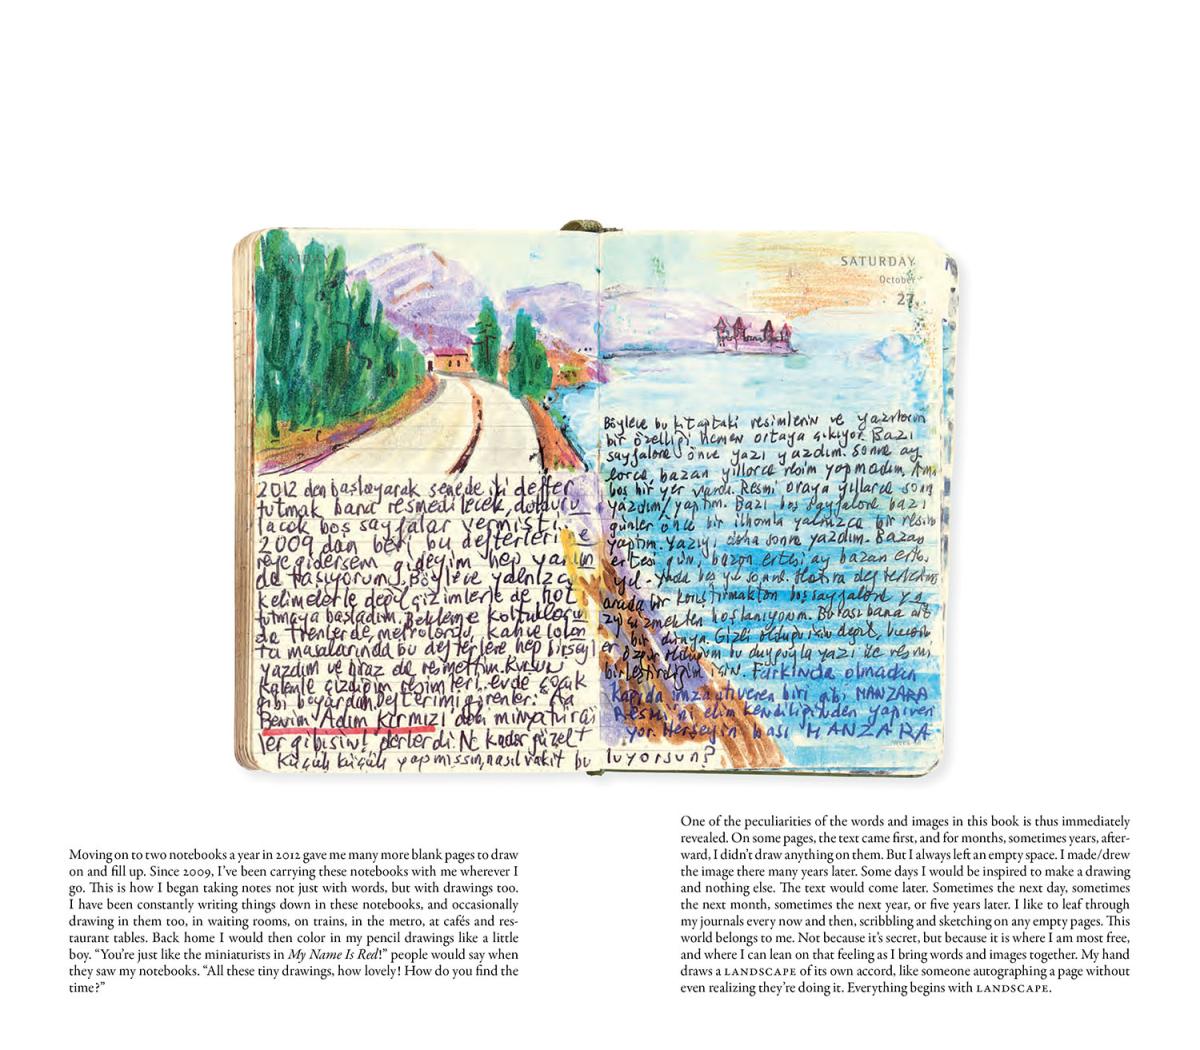 FRIDAY
2012 den başlayarak senede iki defter
tutmak bana resmedilecek, doldurul
lacak boş sayfalar vermişti.
2009 dan beri bu defterleri ne
reye gidersem gideyim hep yanım
da taşıyorum. Böylece yalnızca
kelimelerle değil çizimlerle de not
tutmaya başladım. Bekleme koltukların
da trenlerde, metrolarda, kahve lokan
ta masalarında bu defterlere hep birşeyler
yazdım ve biraz da resmettim. Kurşun
kalemle çizdiğim resimleri, evde çocuk
gibi boyardım. Defterimi görenler: Aa
Benim Adım Kırmızı daki minyatürcü
ler gibisin! derlerdi. Ne kadar güzel
küçük küçük yapmışsın, nasıl vakit bu luyorsun?
SATURDAY
October
27
Böylece bu kitaptaki resimlerin ve yazıların
bir özelliği hemen ortaya çıkıyor. Bazı
sayfalara önce yazı yazdım. Sonra ay
larca, bazan yıllarca resim yapmadım. Ama
boş bir yer vardı. Resmi oraya yıllarca sonra
yazdım/yaptım. Bazı boş sayfalara bazı
günler önce bir ilhamla yalnızca bir resim
yaptım. Yazıyı daha sonra yazdım. Bazan
ertesi gün, bazan ertesi ay bazan ertesi
yıl. Yada beş yıl sonra. Hatıra defterlerini
arada bir karıştırmaktan boş sayfalara ya
zıp çizmekten hoşlanıyorum. Burası bana ait
bir dünya. Gizli olduğu için değil, burada
özgür olduğum bu duyguyla yazı ile resmi
birleştirdiğim için. Farkında olmadan
kapıda imza atıveren biri gibi MANZARA
Resmi'ni elim kendiliğinden yapıveri
yor. Herşeyin başı MANZARA
Moving on to two notebooks a year in 2012 gave me many more blank pages to draw
on and fill up. Since 2009, I've been carrying these notebooks with me wherever I
go. This is how I began taking notes not just with words, but with drawings too.
I have been constantly writing things down in these notebooks, and occasionally
drawing in them too, in waiting rooms, on trains, in the metro, at cafés and res-
taurant tables. Back home I would then color in my pencil drawings like a little
boy. “You're just like the miniaturists in My Name Is Red!” people would say when
they saw my notebooks. “All these tiny drawings, how lovely! How do you find the
time?”
One of the peculiarities of the words and images in this book is thus immediately
revealed. On some pages, the text came first, and for months, sometimes years, after-
ward, I didn't draw anything on them. But I always left an empty space. I made/drew
the image there many years later. Some days I would be inspired to make a drawing
and nothing else. The text would come later. Sometimes the next day, sometimes
the next month, sometimes the next year, or five years later. I like to leaf through
my journals every now and then, scribbling and sketching on any empty pages. This
world belongs to me. Not because it's secret, but because it is where I am most free,
and where I can lean on that feeling as I bring words and images together. My hand
draws a LANDSCAPE of its own accord, like someone autographing a page without
even realizing they're doing it. Everything begins with LANDSCAPE.